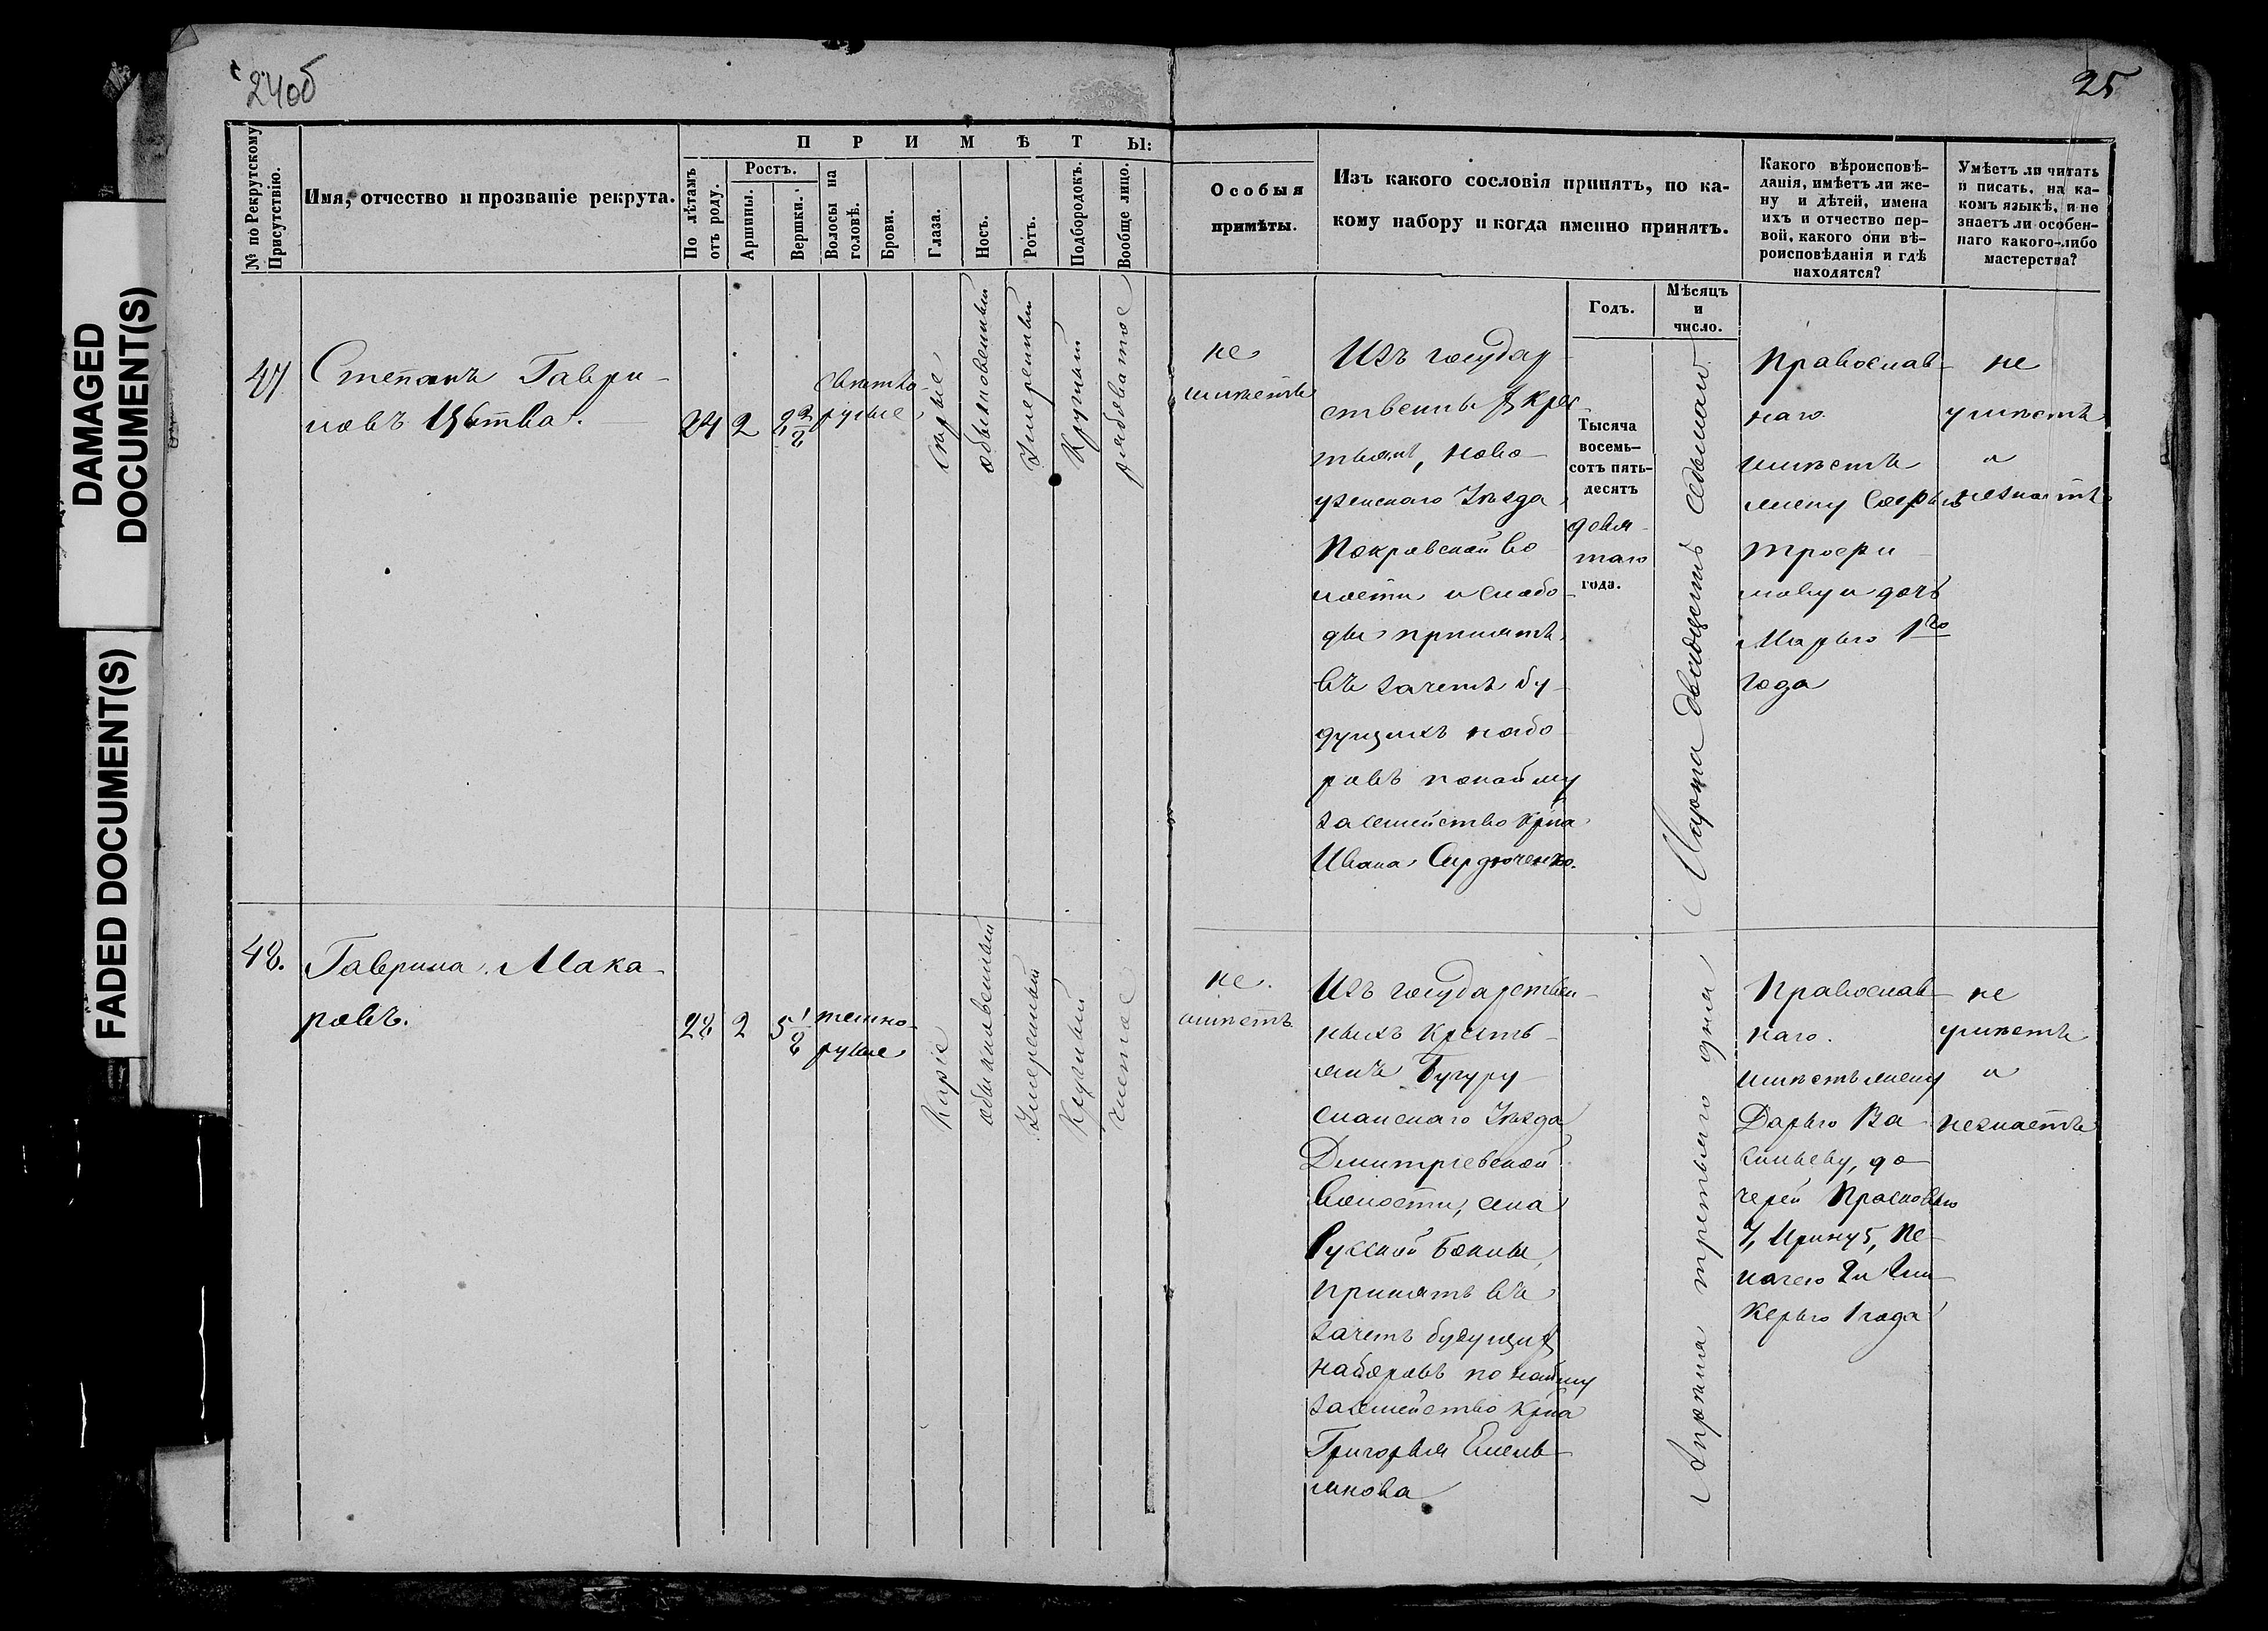 DAMAGED
DOCUMENT(S)
FADED DOCUMENT(S)
24об
25
№ по Рекрутскому
Присутствію.
Имя, отчество и прозваніе рекрута.
ПРИМѢТЫ:
По лѣтамъ
отъ роду.
Ростъ.
Аршины.
Вершки.
Волосы на
головѣ.
Брови.
Глаза.
Носъ.
Ротъ.
Подбородокъ.
Вообще лицо.
Особыя
примѣты.
Изъ какого сословія принятъ, по ка-
кому набору и когда именно принятъ.
Годъ.
Мѣсяцъ
и
число.
Какого вѣроисповѣ-
данія, имѣетъ ли же-
ну и дѣтей, имена
ихъ и отчество пер-
вой, какого они вѣ-
роисповѣданія и гдѣ
находятся?
Умѣетъ ли читать
и писать, на ка-
комъ языкѣ, и не
знаетъ ли особен-
наго какого-либо
мастерства?
47
Степанъ Гаври-
ловъ
24
2
2 2/8
свѣтло-
русые
сѣрые
обыкновенный
умеренный
Круглый
рябоватое
не
имѣетъ
Изъ государ-
ственныхъ крес-
тьянъ, Ново-
узенскаго Уѣзда
Покровской во
лости и слобо-
ды принятъ
въ зачетъ бу-
дущихъ набо
ровъ по найму
за семейство Крна
Ивана Сердюченко.
Тысяча
восемь-
сотъ пять-
десятъ
девя-
таго
года.
Марта двадцать седьмаго
Православ-
наго.
имѣетъ
жену
Трофи-
мову и дочь
Марью 1го
года
не
умѣетъ
и
незнаетъ
48.
Гаврила Мака-
ровъ.
28
2
5 1/8
темно-
русые
Каріе
обыкновенный
умеренный
Круглый
чистое
не
имѣетъ
Изъ государствен-
ныхъ Кресть-
янъ Бугуру-
сланскаго Уѣзда
Дмитріевской
Волости, села
Русской Боклы,
принятъ въ
зачетъ будущихъ
наборовъ по найму
за семейство Крна
Григорья Емель-
янова
Апрѣля третьяго дня
Православ-
наго.
имѣетъ жену
Дарью Ва
сильеву, до-
черей Прасковью
7, Ирину 5, Пе-
лагею 2 и Гли-
керью 1 года
не
умѣетъ
и
незнаетъ